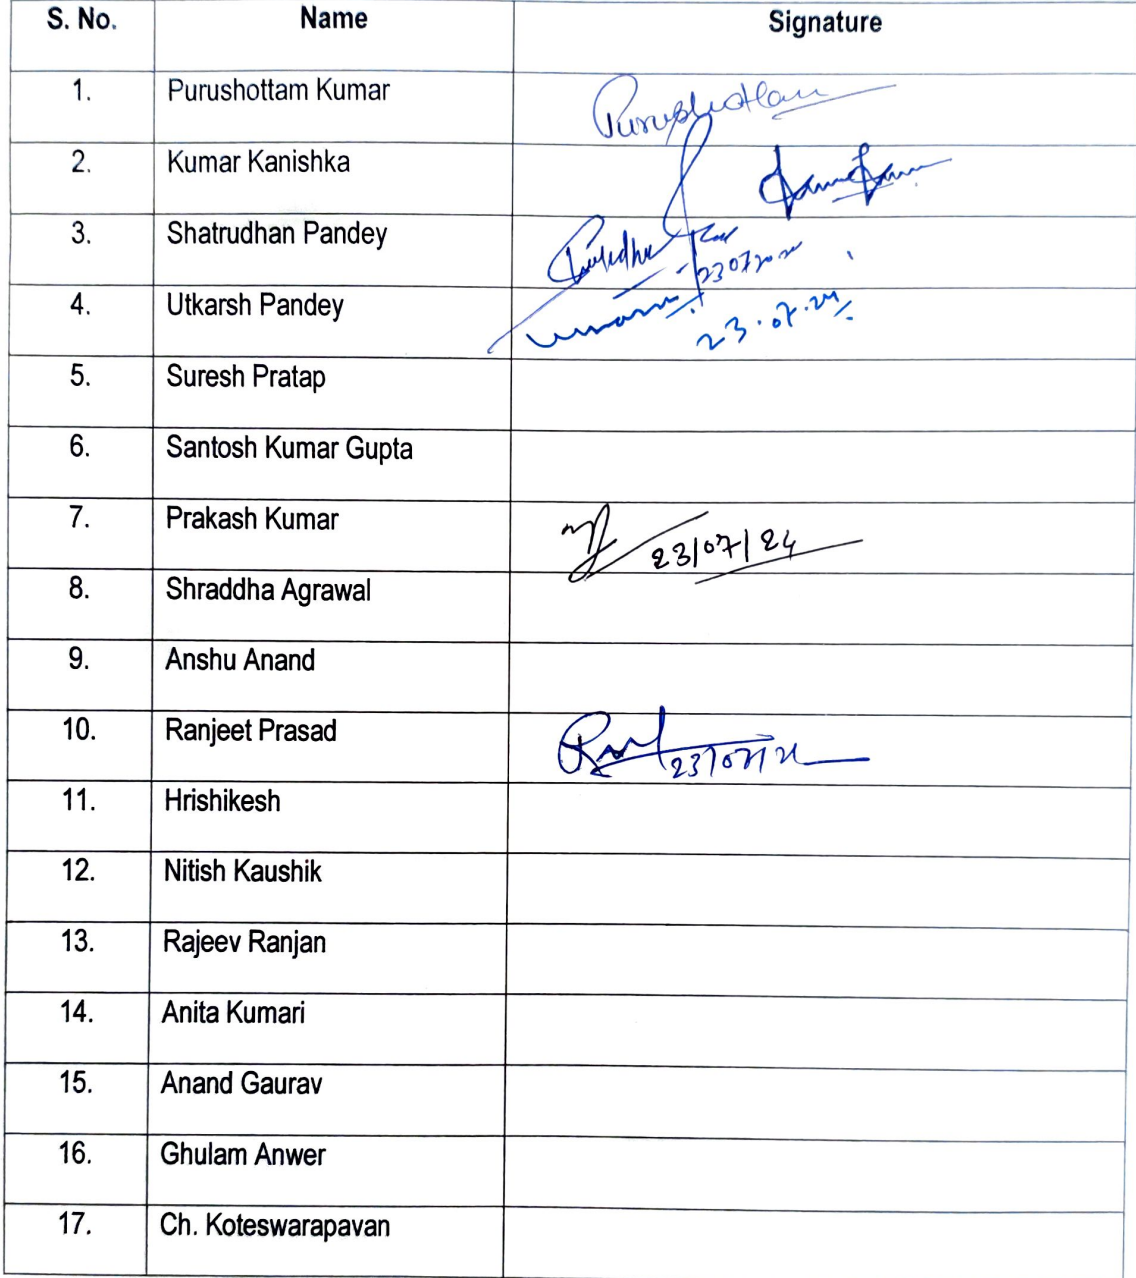 S. No. Name Signature
1. Purushottam Kumar Purushottam
2. Kumar Kanishka
3. Shatrudhan Pandey
4. Utkarsh Pandey 23.07.24
5. Suresh Pratap
6. Santosh Kumar Gupta
7. Prakash Kumar 23/07/24
8. Shraddha Agrawal
9. Anshu Anand
10. Ranjeet Prasad
11. Hrishikesh
12. Nitish Kaushik
13. Rajeev Ranjan
14. Anita Kumari
15. Anand Gaurav
16. Ghulam Anwer
17. Ch. Koteswarapavan